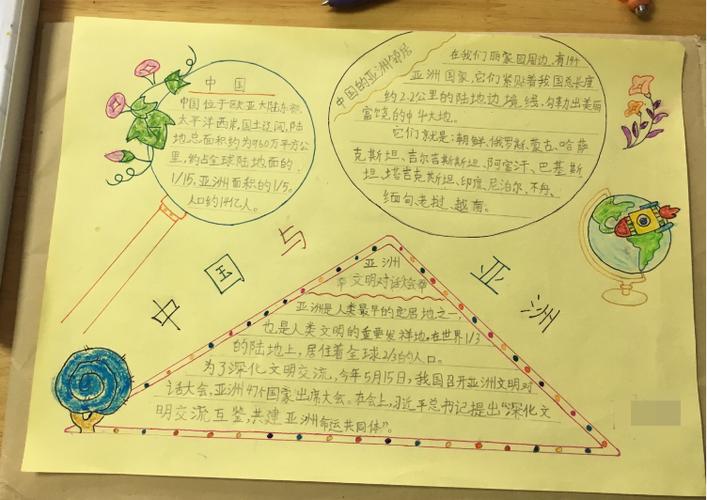 中国
中国位于欧亚大陆东部,
太平洋西岸,国土辽阔,陆
地总面积约为960万平方公
里,约占全球陆地面的
1/15,亚洲面积的1/5。
人口约14亿人。
中国的亚洲邻居
在我们家园周边,有14个
亚洲国家,它们紧贴着我国总长度
约2.2公里的陆地边境线,勾勒出美丽
富饶的中华大地。
它们就是:朝鲜、俄罗斯、蒙古、哈萨
克斯坦、吉尔吉斯斯坦、阿富汗、巴基斯
坦、塔吉克斯坦、印度、尼泊尔、不丹、
缅甸、老挝、越南。
中国与亚洲
亚洲
文明对话大会
亚洲是人类最早的定居地之一,
也是人类文明的重要发祥地,在世界1/3
的陆地上,居住着全球2/3的人口。
为了深化文明交流,今年5月15日,我国召开亚洲文明对
话大会,亚洲47个国家出席大会。在会上,习近平总书记提出“深化文
明交流互鉴,共建亚洲命运共同体”。